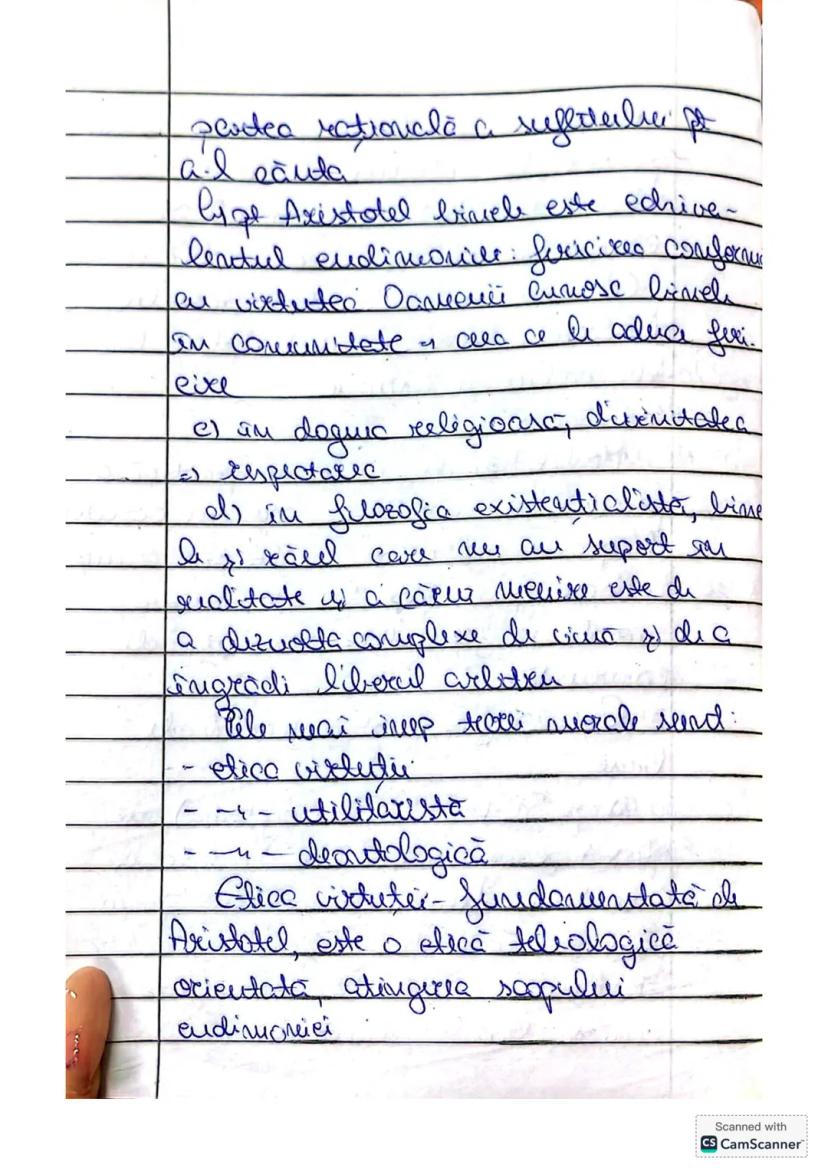 partea rațională a sufletului pt
a-l căuta
b) pt Aristotel binele este echiva-
lentul eudimoniei: fericirea conformă
cu virtutea Oamenii cunosc binele
în comunitate => ceea ce le aduce feri-
cire
c) în dogma religioasă, divinitatea
=> respectarea
d) în filozofia existențialistă, bine
le și răul care nu au suport în
realitate și a căror menire este de
a dezvolta complexe de vină și de a
îngrădi liberul arbitru
Cele mai imp teorii morale sunt:
- etica virtuții
- -"- utilitaristă
- -"- deontologică
Etica virtuței - fundamentată de
Aristotel, este o etică teleologică
orientată, atingerea scopului
eudimoniei
Scanned with
CS CamScanner